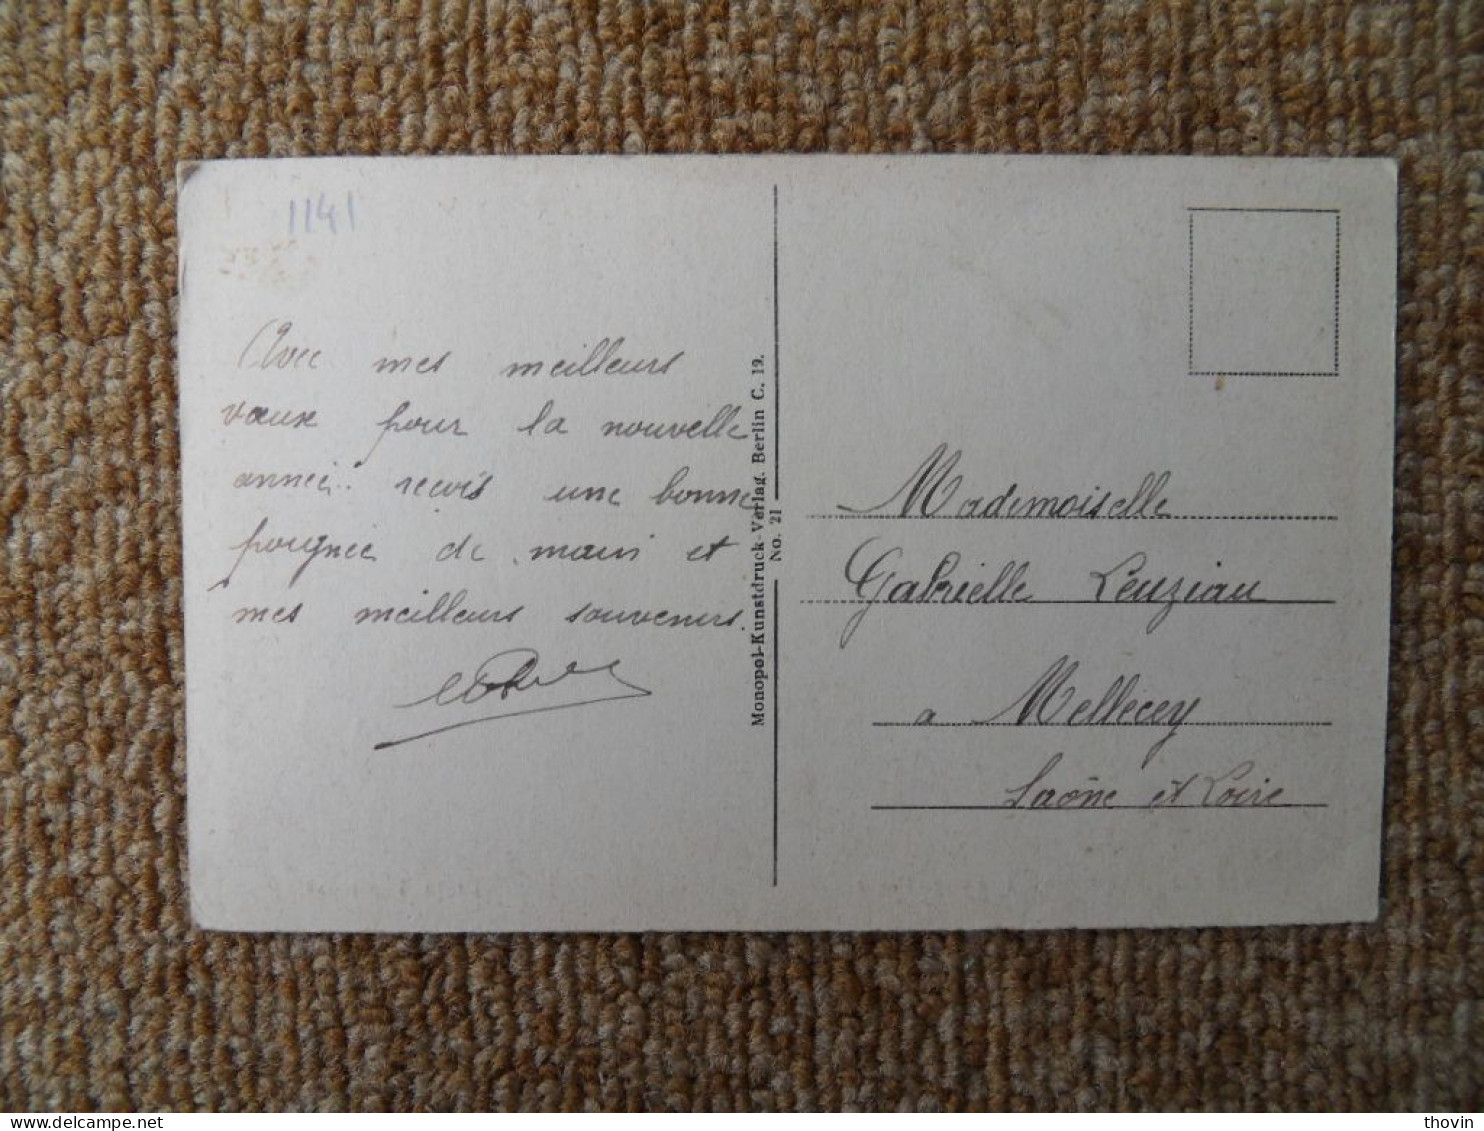 1141
Avec mes meilleurs
vœux pour la nouvelle
année. reçois une bonne
poignée de main et
mes meilleurs souvenirs.
Monopol-Kunstdruck-Verlag. Berlin C. 19.
No. 21
Mademoiselle
Gabrielle Leuziau
a Mellecey
Saône et Loire
thovin